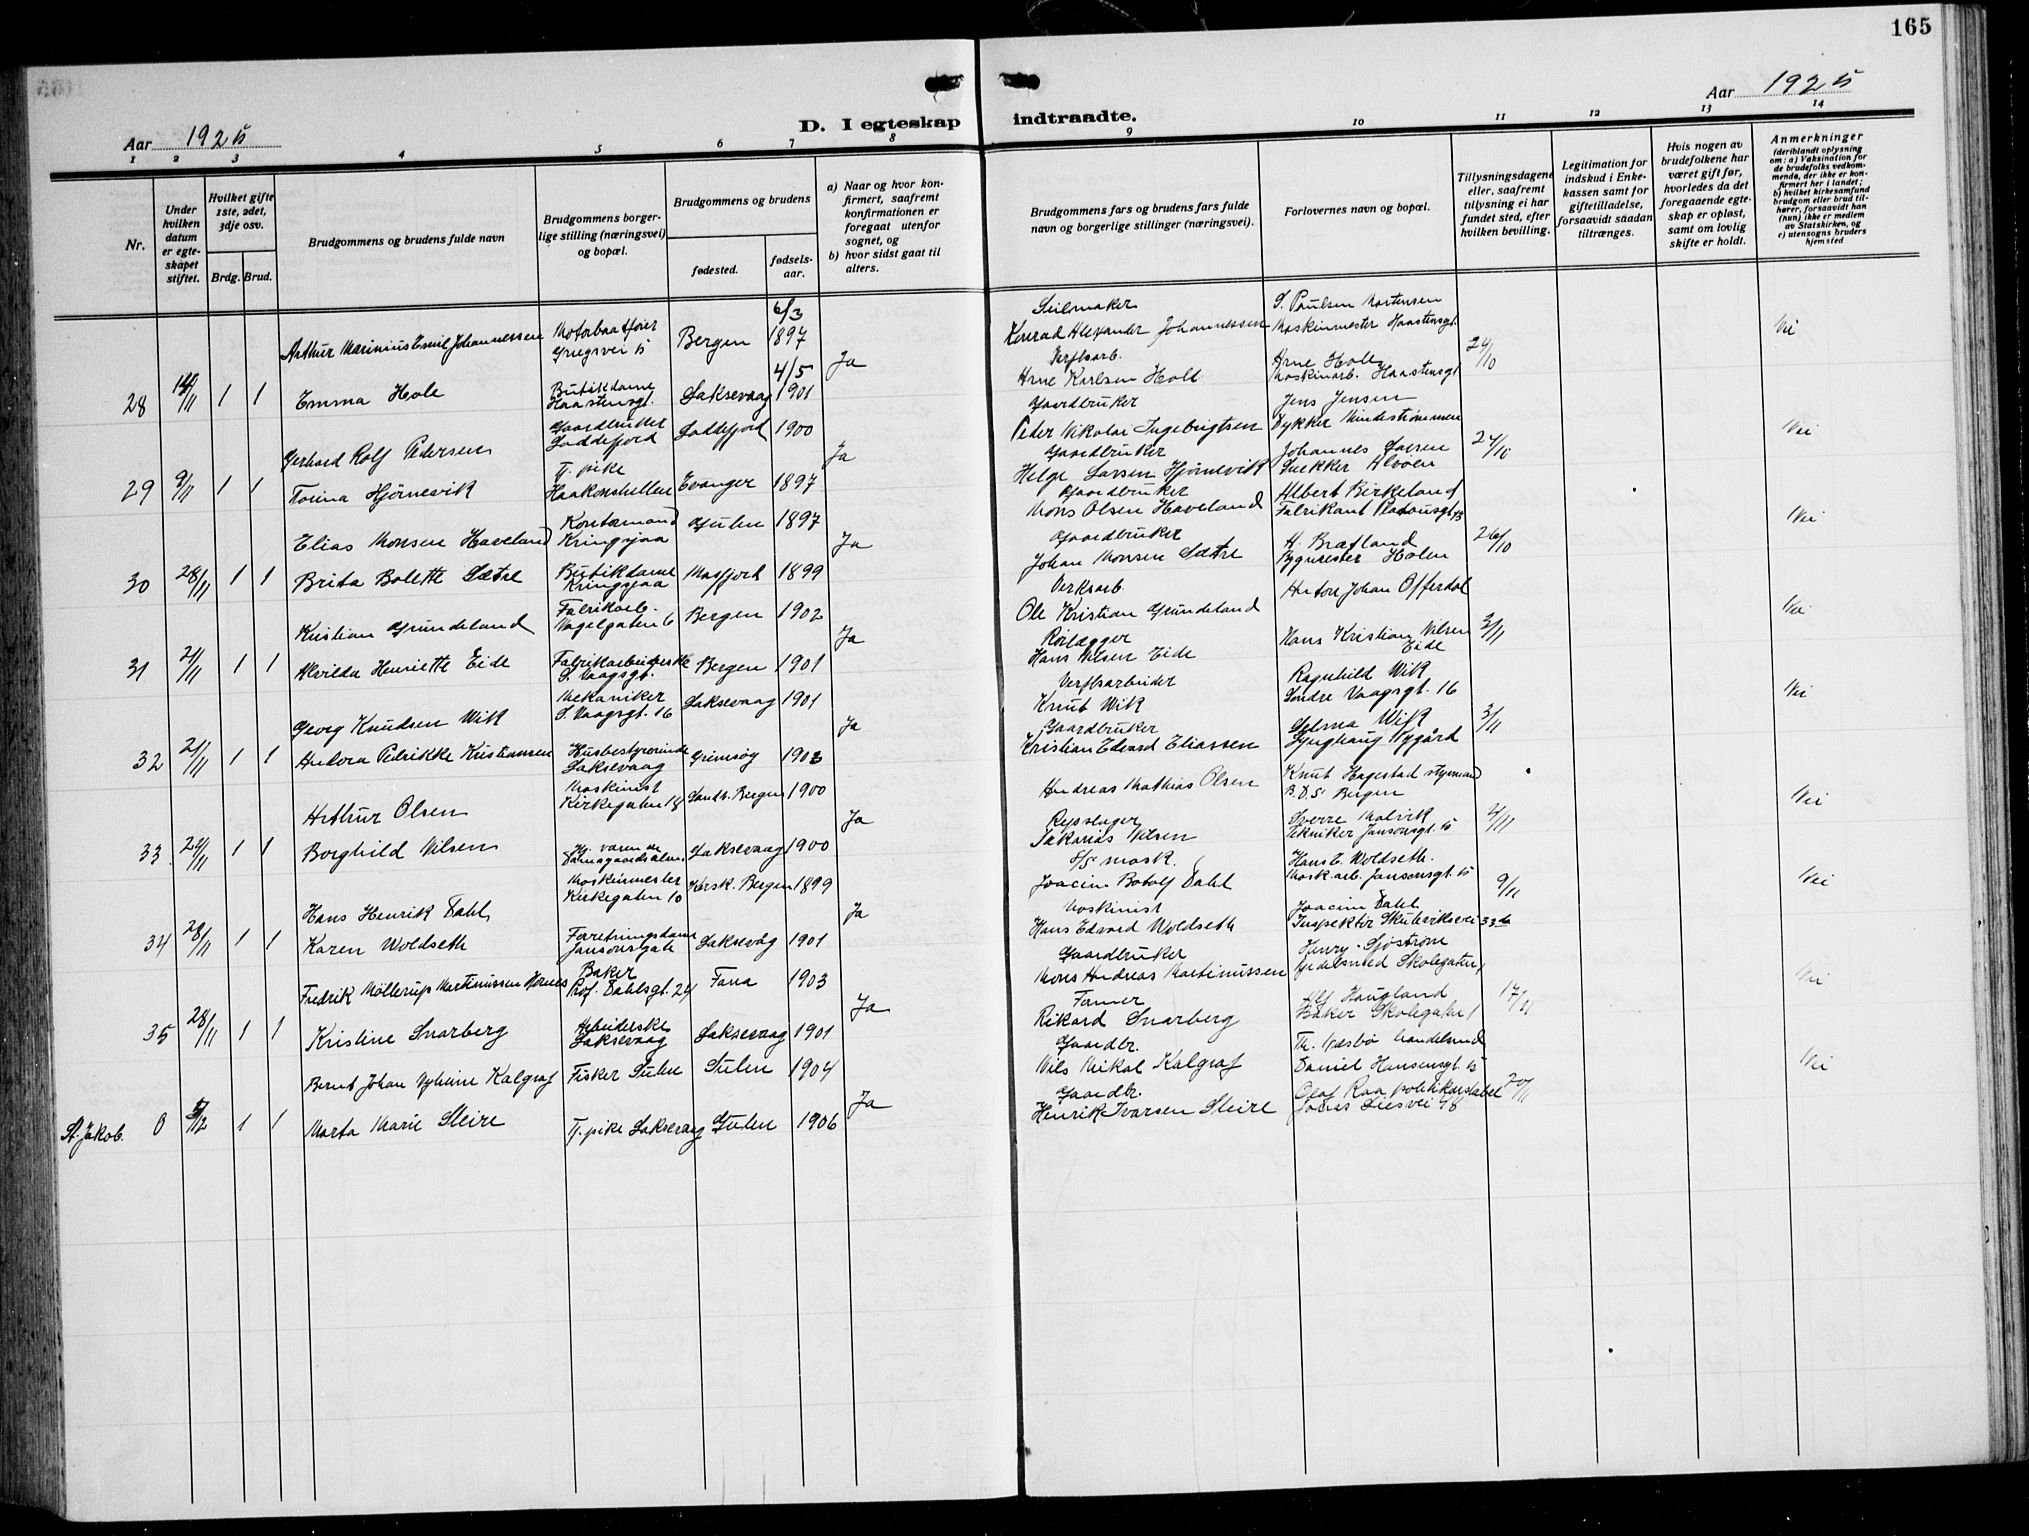 165
Aar 1925
D. I egteskap indtraadte.
Aar 1925
1 2 3 4 5 6 7 8 9 10 11 12 13 14
Nr.
Under hvilken datum er egteskapet stiftet.
Hvilket gifte 1ste, 2det, 3dje osv.
Brdg. Brud.
Brudgommens og brudens fulde navn
Brudgommens borgerlige stilling (næringsvei) og bopæl.
Brudgommens og brudens
fødested.
fødselsaar.
a) Naar og hvor konfirmert, saafremt konfirmationen er foregaat utenfor sognet, og
b) hvor sidst gaat til alters.
Brudgommens fars og brudens fars fulde navn og borgerlige stillinger (næringsvei).
Forlovernes navn og bopæl.
Tillysningsdagene eller, saafremt tillysning ei har fundet sted, efter hvilken bevilling.
Legitimation for indskud i Enkekassen samt for giftetilladelse, forsaavidt saadan tiltrænges.
Hvis nogen av brudefolkene har været gift før, hvorledes da det foregaaende egteskap er opløst, samt om lovlig skifte er holdt.
Anmerkninger (deriblandt oplysning om: a) Vaksination for de brudefolks vedkommende, der ikke er konfirmert her i landet; b) hvilket kirkesamfund brudgom eller brud tilhører, forsaavidt han (hun) ikke er medlem av Statskirken, og c) utensogns bruders hjemsted
Arthur Marinius Emil Johannessen Motorbaatfører Bergen 6/3 1897 Seilmaker Konrad Alexander Johannessen S. Paulsen Mortensen Maskinmester Haastensgt. Nei
28 14/11 1 1 Emma Hole Butikdame Haastensgt. Laksevaag 4/5 1901 Ja Verftsarb. Arne Karlsen Hole Arne Hole Maskinarb. Haastensgt 24/10
Gerhard Rolf Pedersen Gaardbruker Loddefjord Loddefjord 1900 Gaardbruker Peder Nikolai Ingebrigtsen Jens Jensen Dykker Mindestrømmen Nei
29 9/11 1 1 Torina Hjørnevik Tj. pike Haakonshellen Evanger 1897 Ja Gaardbruker Helge Larsen Hjørnevik Johannes Larsen Snekker Alvøen 24/10
Elias Monsen Haveland Kontormand Kringsjaa Gulen 1897 Gaardbruker Mons Olsen Haveland Albert Birkeland Fabrikant Nei
30 28/11 1 1 Brita Bolette Sætre Butikdame Kringsjaa Masfjord 1899 Ja Gaardbruker Johan Monsen Sætre H. Bratland Bygmester Holen 26/10
Kristian Grundeland Fabrikarb. Bergen 1902 Verksarb. Ole Kristian Grundeland Anton Johan Offerdal Nei
31 21/11 1 1 Alvilda Henriette Eide Fabrikarbeiderske S. Vaagsgt. Bergen 1901 Ja Rørlægger Hans Nilsen Eide Hans Kristian Nilsen Eide 3/11
Georg Knudsen Wik Mekaniker S. Vaagsgt. 16 Laksevaag 1901 Verftsarbeider Knut Wik Ragnhild Wik Søndre Vaagsgt. 16 Nei
32 21/11 1 1 Andora Pedrikke Kristiansen Husbestyrerinde Laksevaag 1903 Ja Gaardbruker Kristian Edvard Eliassen Selma Wik Lynghaug Nygård 3/11
Arthur Olsen Maskinist Kirkegaten 18 Sandv. Bergen 1900 Andreas Mathias Olsen Knut Hagestad styrmand B.D.S. Bergen Nei
33 24/11 1 1 Borghild Nilsen Laksevaag 1900 Ja Repslager Sakarias Nilsen Sverre Malvik Tekniker Jansonsgt. 5 4/11
Hans Henrik Dahl Maskinmester Kirkegaten 10 Korsk. Bergen 1899 Joacim Botolf Dahl Hans E. Woldseth. Mask.arb. Jansonsgt. 5 Nei
34 28/11 1 1 Karen Woldseth Forretningsdame Jansonsgate Laksevåg 1901 Ja Maskinist Hans Edvard Woldseth Joacim Dahl Inspektør Skuteviksvei 9/11
Fredrik Möllerup Martinussen Baker Prof. Dahlsgt. 24 Fana 1903 Gaardbruker Mons Andreas Martinussen Henry Sjøstrøm Skolegaten Nei
35 28/11 1 1 Kristine Snarberg Arbeiderske Laksevaag Laksevaag 1901 Ja Former Rikard Snarberg Alf Haugland Baker Skolegaten 1 17/11
Bernt Johan Kalgraf Fisker Sulen Sulen 1904 Gaardbr. Nils Nikal Kalgraf Daniel Hansensgt 5 Nei
St. Jakob. 0 5/12 1 1 Marta Marie Sleire Tj. pike Laksevaag Gulen 1906 Ja Gaardbr. Henrik Ivarsen Sleire Olaf Raa politikonstabel Jonas Liesvei 48 20/11